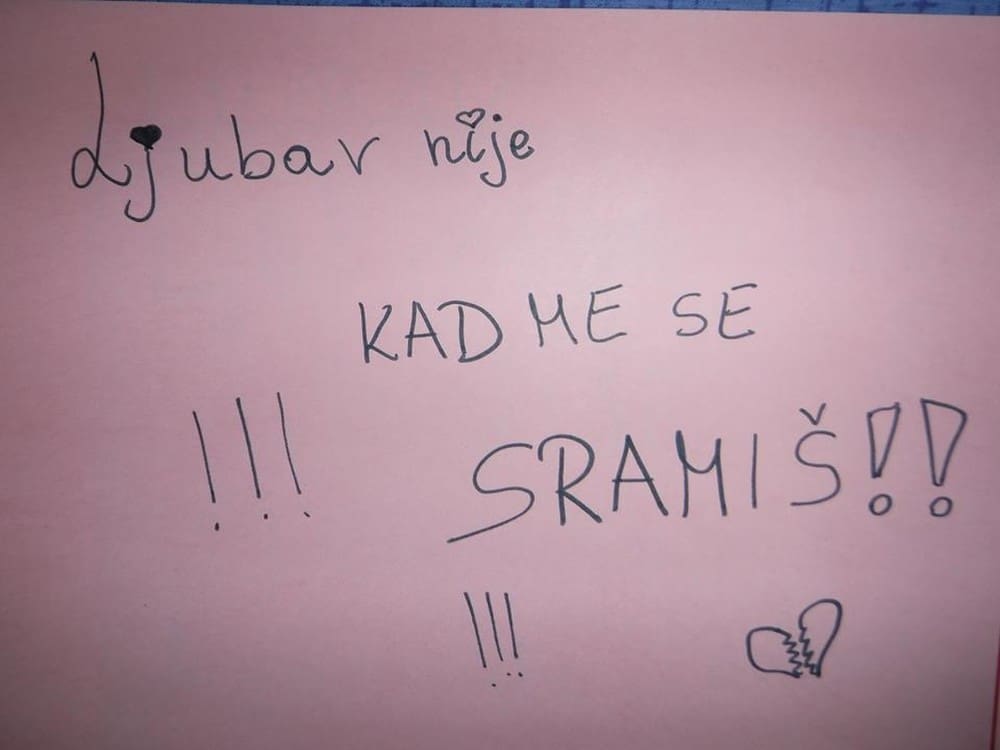 Ljubav nije
KAD ME SE
!!! SRAMIŠ!!
!!!